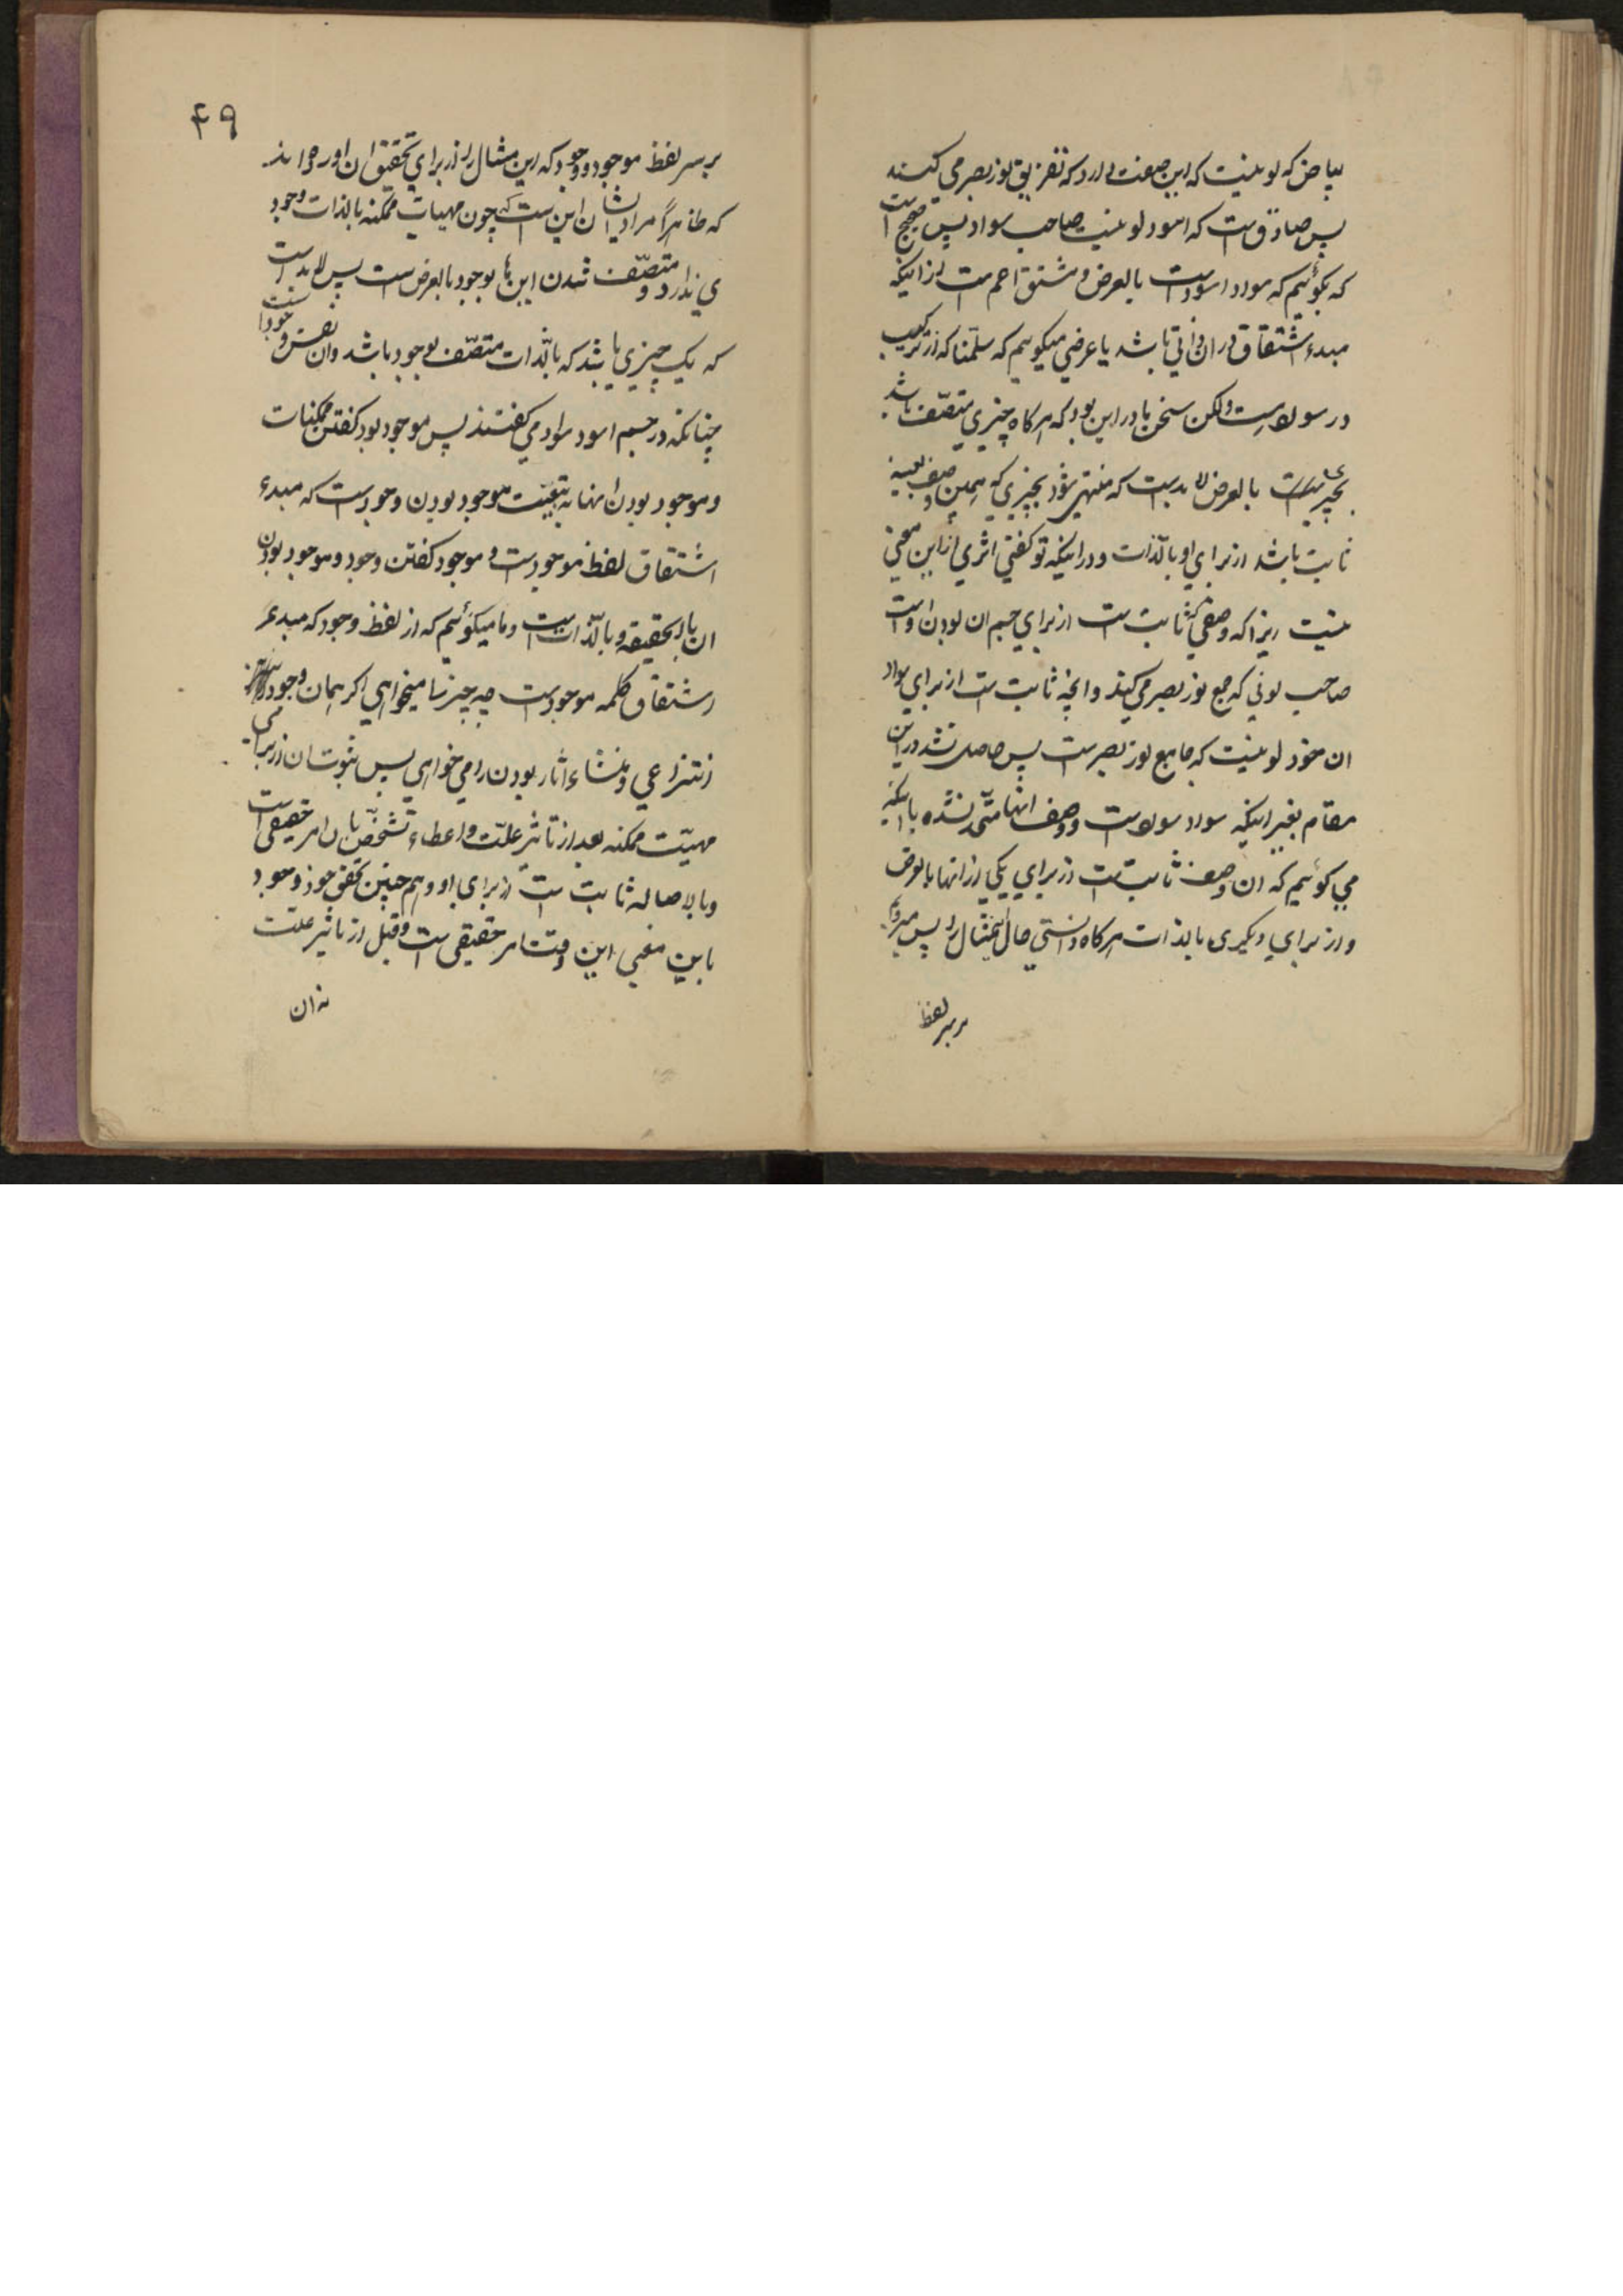 بیاض که لونیست که این صفت دارد که تفریق نور بصر می کند
پس صادق است که اسود لونیست صاحب سواد پس صحیح است
که بگوئیم که سواد اسود است بالعرض و مشتق اعم است از اینکه
مبدء اشتقاق در ان ذاتی باشد یا عرضی میگوییم که سلمنا که از ترکیب
در سواد است ولکن سخن ما در این بود که هرگاه چیزی متصف باشد
بالعرض لابد است که منتهی شود بچیزی که همین وصف بعینه
ثابت باشد از برای او بالذات و در اینکه تو گفتی اثری از این معنی
نیست زیرا که وصفی که ثابت است از برای جسم ان بودن او است
صاحب لونی که جمع نور بصر می کند و انچه ثابت است از برای سواد
ان خود لونیست که جامع نور بصر است پس حاصل نشد در این
مقام بغیر اینکه سواد سواد است و وصف انها متحد نشده با اینکه
می گوئیم که ان وصف ثابت است از برای یکی از انها بالعرض
و از برای دیگری بالذات هرگاه دانستی حال این مثال را پس میرویم
بر سر لفظ
۴۹
بر سر لفظ موجود و وجود که این مثال را از برای تحقیق ان اورده اند
که ظاهرا مراد ایشان این است که چون مهیات ممکنه بالذات وجود
ی ندارد و متصف شدن این ها بوجود بالعرض است پس لابد است
که یک چیزی باشد که بالذات متصف بوجود باشد وان نفس وجود است
چنانکه در جسم اسود سواد می گفتند پس موجود بود گفتن ممکنات
و موجود بودن انها به تبعیت موجود بودن وجود است که مبدء
اشتقاق لفظ موجود است و موجود گفتن وجود و موجود بودن
ان بالحقیقه و بالذات است و ما میگوئیم که از لفظ وجود که مبدء
اشتقاق کلمه موجود است چه چیز را میخواهی اگر همان وجود
انتزاعی و منشاء اثار بودن را می خواهی پس ثبوت ان از برای
مهیت ممکنه بعد از تاثیر علت و اعطاء تشخص بان امر حقیقی است
و بالاصاله ثابت است از برای او و هم چنین تحقق خود وجود
باین معنی این وقت امر حقیقی است و قبل از تاثیر علت
نه ان